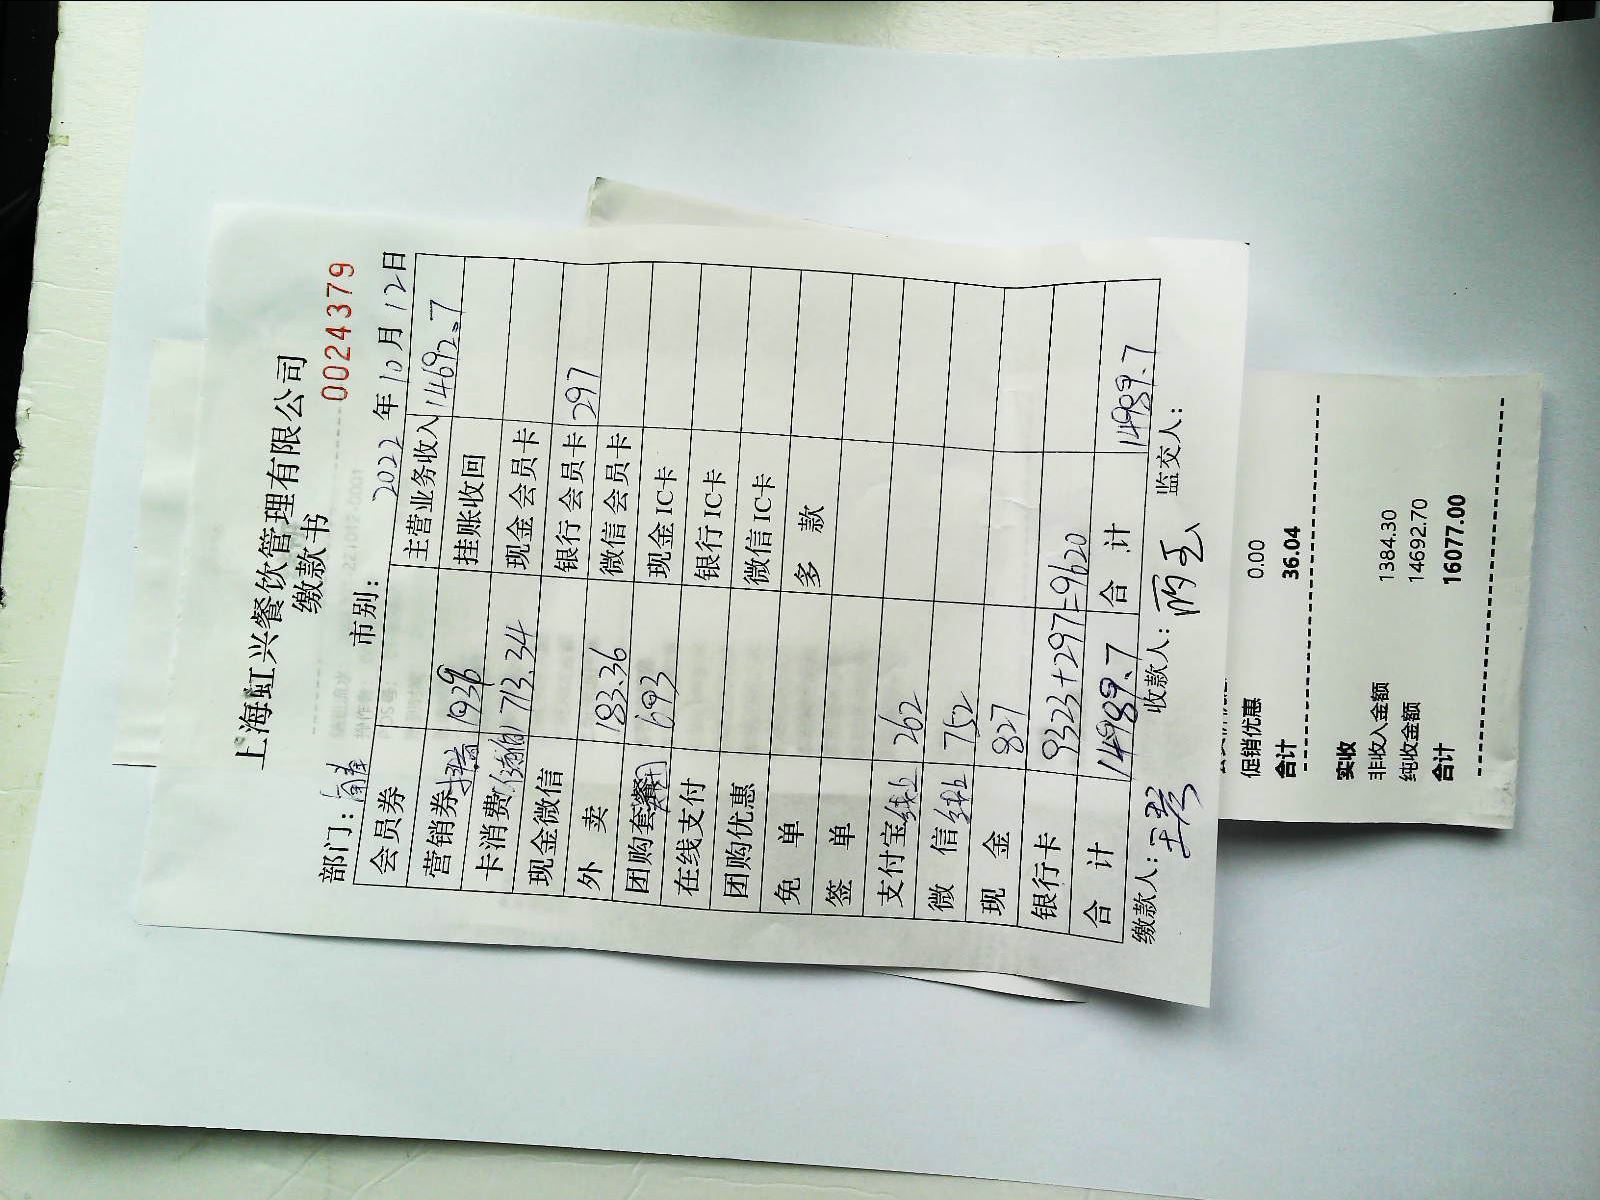 上海虹兴餐饮管理有限公司
缴款书
0024379
部门: 市别: 2022 年 10 月 12 日
会员券 主营业务收入 14692.7
营销券 1939 挂账收回
卡消费 713.34 现金会员卡
现金微信 银行会员卡 297
外 卖 183.36 微信会员卡
团购套餐 693 现金IC卡
在线支付 银行IC卡
团购优惠 微信IC卡
免 单 多 款
签 单
支付宝线上 262
微 信线上 752
现 金 827
银行卡 9323+297=9620
合 计 14989.7 合 计 14989.7
缴款人: 收款人: 监交人:
促销优惠 0.00
合计 36.04
实收
非收入金额 1384.30
纯收金额 14692.70
合计 16077.00